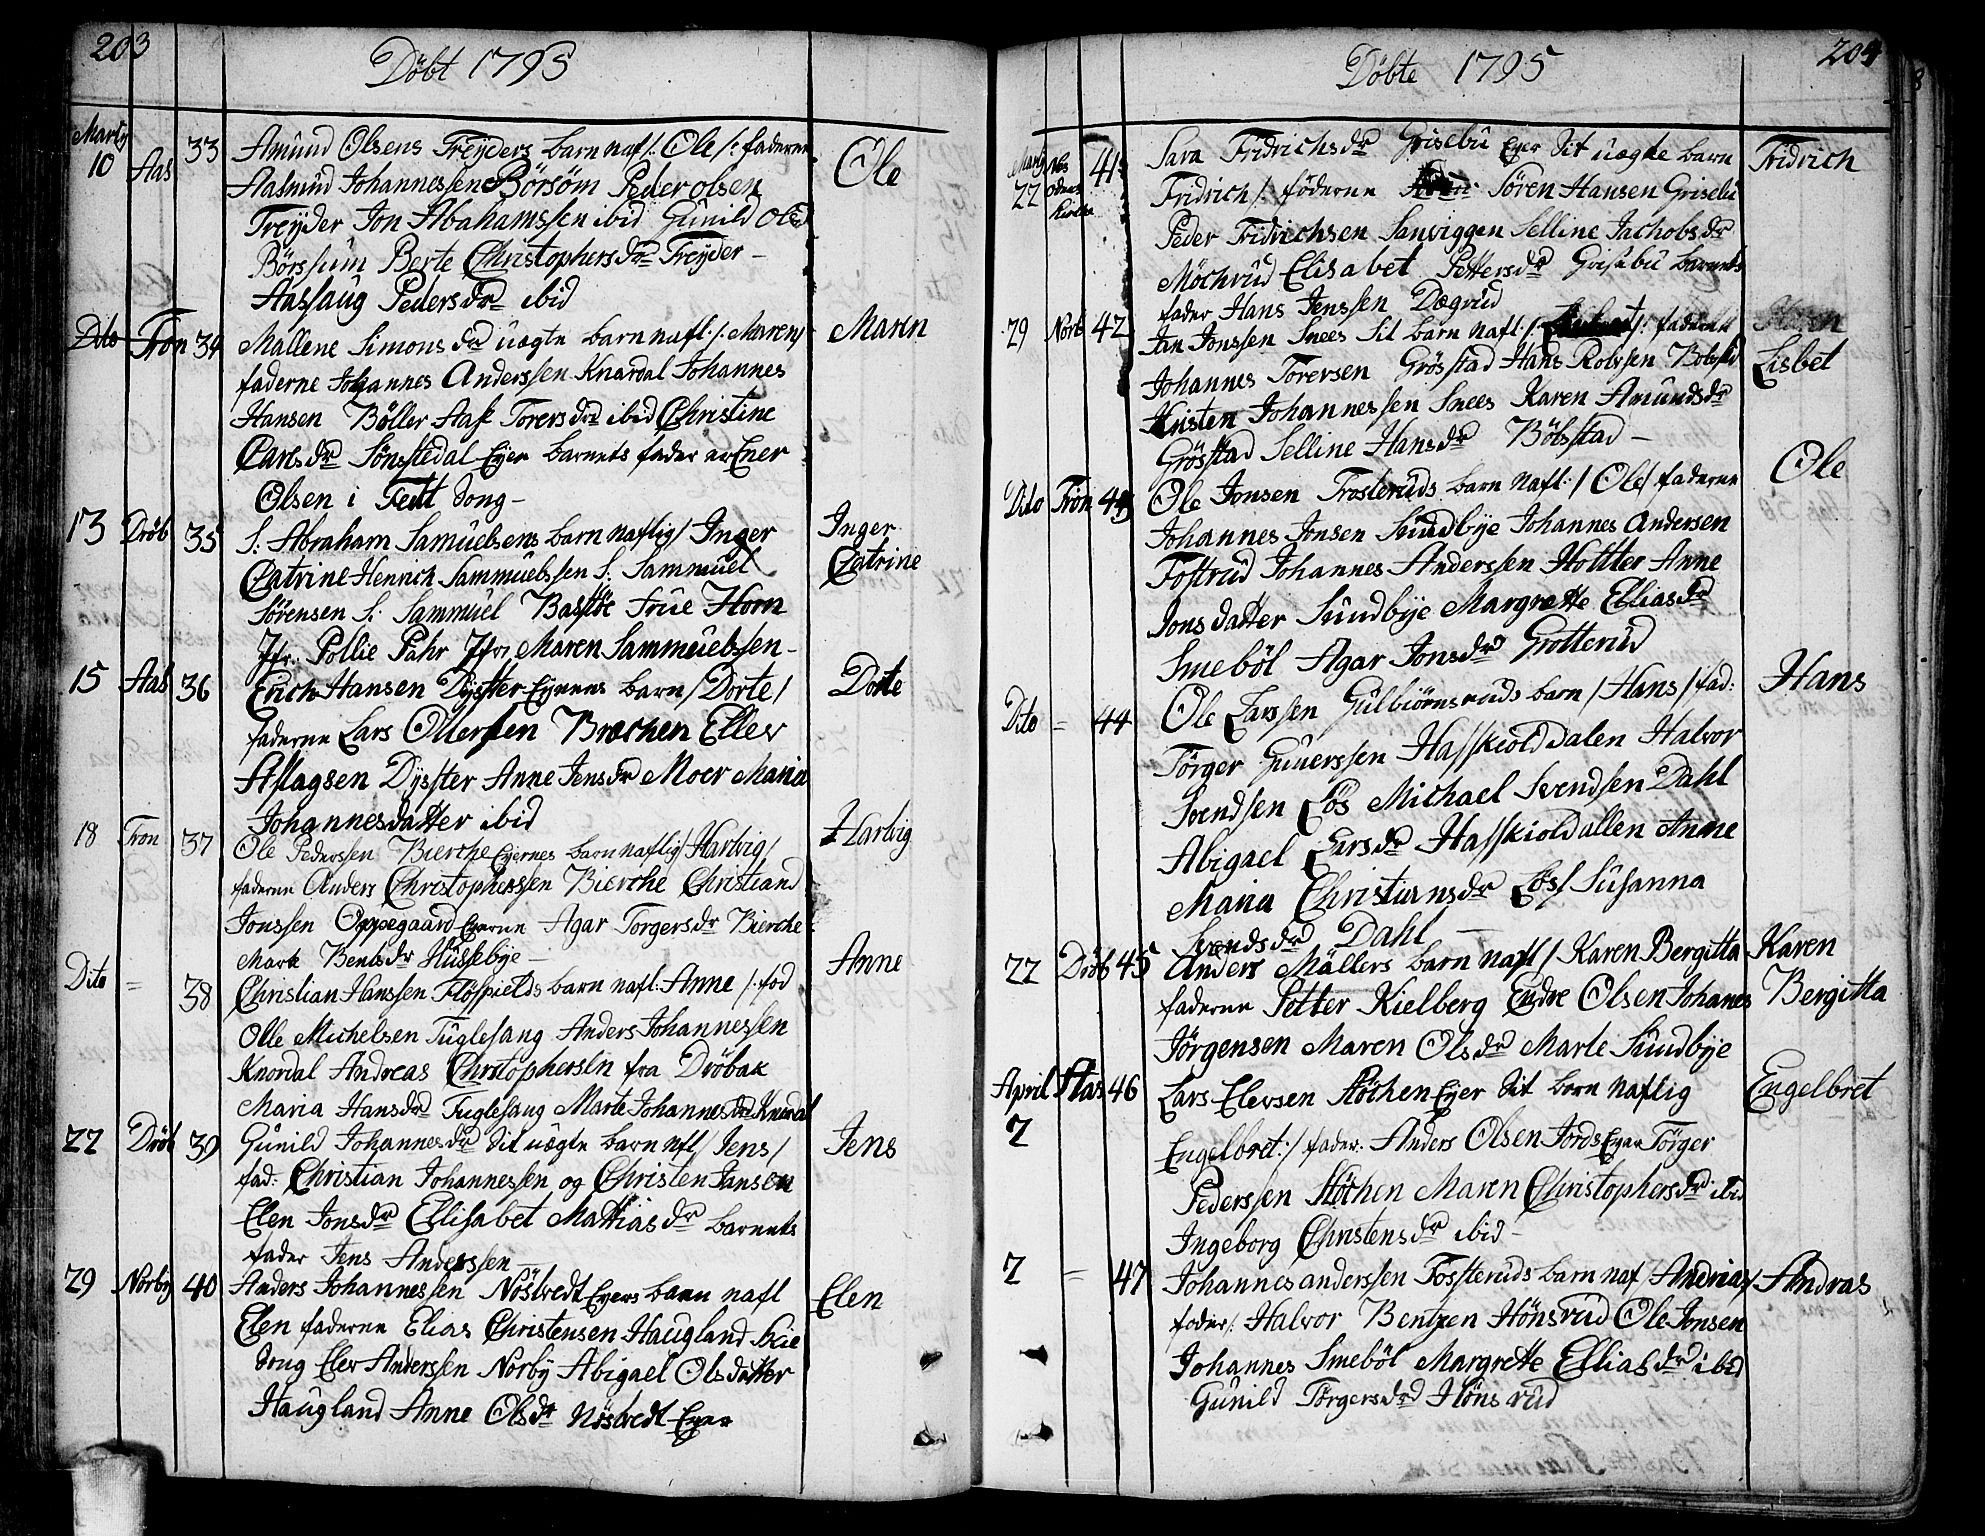 203
Döbt 1795
Martj 10 Aas 33 Amund Olsens Treyders barn naf /: Ole /: faderne Ole
Aasmund Johannessen Börsöm Peder olsen
Treyder Jon Abrahamssen ibid Gunild Olsd
Börssum Berte Christophersdr Treyder –
Aaslaug Pedersdr ibid
Dito Fron 34 Mallene Simonsdr uægte barn nafl /: Maren Maren
faderne Johannes Anderssen Knardal Johannes
Hansen Böller Aase Torersdr ibid Christine
Carlsdr Sönstedal Eyer barnets fader er Ener
Olsen i Feitt Song –
13 Dröb 35 S: Abraham Samuelsens barn naflig / Inger Inger
Catrine Henrich Sammuelssen S: Sammuel Catrine
Sörensen S: Sammuel Bastöe Frue Horn
Jfr. Pollie Pahr Jfr. Maren Sammuelssen –
15 Aas 36 Erich Hansen Dyster Eyerens barn / Dorte / Dorte
faderne Lars Ollersen Brechen Ellev
Aslagsen Dysster Anne Jensdr Moer Maria
Johannesdatter ibid
18 Fron 37 Ole Pederssen Bierche Eyernes barn naflig / Hartvig / Hartvig
faderne Anders Christophessen Bierche Christiand
Jonssen Oppegaard Eyerne Agar Torgersdr Bierche
Mark Bentsdr Hussebye –
Dito = 38 Christian Hanssen Flöspields barn nafl: Anne /: fod Anne
Olle Michelsen Fuglesang Anders Johannessen
Knordal Andreas Christophersen fra Dröbak
Maria Hansdr Fuglesang Marte Johannesdr Knordal
22 Dröb 39 Gunild Johannesdr sit uægte barn nfl / Jens / Jens
fad: Christian Johannessen og Christen Jansen
Elen Jonsdr Ellisabet Mattiasdr barnets
fader Jens Anderssen –
29 Norby 40 Anders Johannessen Nöstvedt Eyers barn nafl Elen
Elen faderne Elias Christensen Haugland Skie
Song Elev Anderssen Norby Abigael Olsdatter
Haugland Anne Olsdr Nöstvedt Eyer
204
Döbte 1795
Martj 22 Nes odens kirke 41 Sara Fridrichsdr Grisebu Eyer sit uægte barn Fridrich
Fridrich /: föderne Sören Hansen Grisebu
Peder Fridrichsen Sanviggen Selline Jachobsdr
Möchrud Elisabet Pettersdr Grisebu barnets
fader Hans Jenssen Dægrud
29 Norb 42 Jan Jonssen Snees sit barn nafl / /: faderne
Johannes Torersen Grösstad Hans Rolvssen Bölstad Lisbet
Kristen Johannessen Snees Karen Amundsdr
Grösstad Selline Hansdr Bölsstad –
Dito Fron 43 Ole Jonsen Trosteruds barn Nafl: / Ole / faderne Ole
Johannes Jonsen Sundbye Johannes Andersen
Fostrud Johannes Anderssen Holtter Anne
Jonsdatter Sundbye Margrette Elliasdr
Smeböl Agar Jonsdr Grotterud
Dito = 44 Ole Larssen Gulbiörnsruds barn / Hans / fad: Hans
Törger Guuerssen Hasskiolddalen Halvor
Svendsen Lös Michael Svendsen Dahl
Abigael Larsdr Hasskioldallen Anne
Maria Christiansdr Löss Susanna
Svendsdr Dahl –
22 Dröb 45 Anders Mällers barn nafl / Karen Bergitta Karen
faderne Petter Kielberg Endre Olsen Johanes Bergitta
Jörgensen Maren Olsdr Marte Sundbye
April 2 Aas 46 Lars Elevsen Stöchen Eyer sit born naflig Engelbret
Engelbret: / fader: Anders Olsen Jords Eyer Törger
Pederssen Stöchen Maren Christophersdr ibid
Ingeborg Christensdr ibid –
2 = 47 Johannes anderssen Fossteruds barn naf / Andrias / Andras
foder: Halvor Bentzen Hönsrud Ole Jonsen
Johannes Smeböl Margrette Elliasdr ibid
Gunild Törgersdr Hönsrud